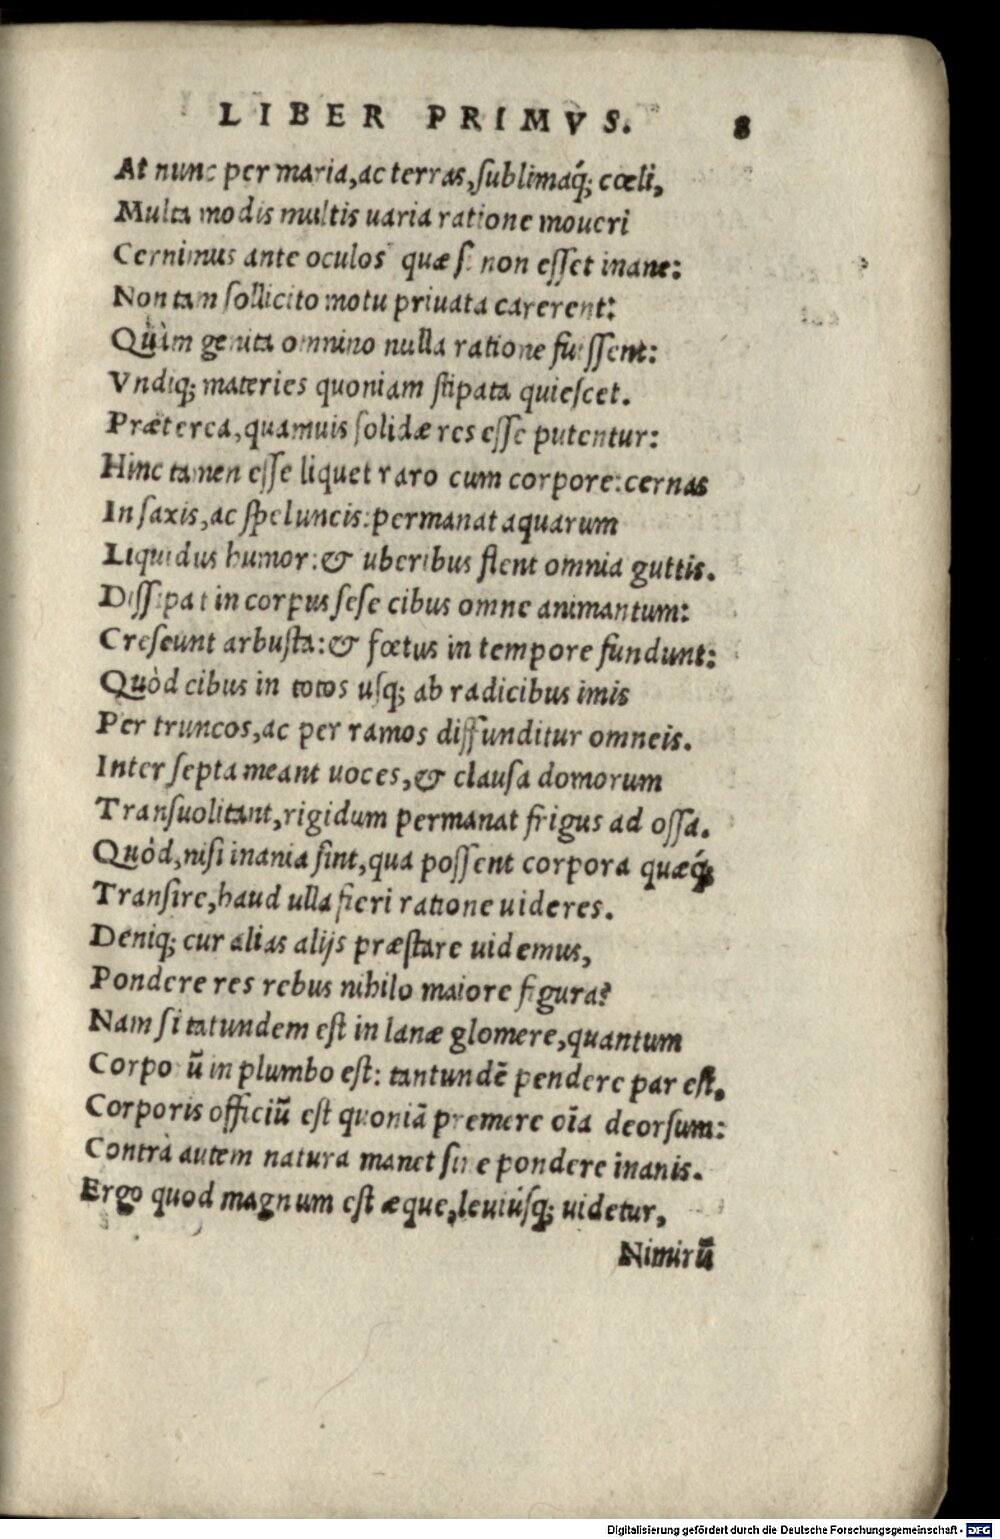 LIBER PRIMVS. 8
At nunc per maria, ac terras, sublimaq́; cœli,
Multa modis multis uaria ratione moueri
Cernimus ante oculos quæ si non esset inane:
Non tam sollicito motu priuata carerent:
Quàm genita omnino nulla ratione fuissent:
Vndiq; materies quoniam stipata quiescet.
Præterea, quamuis solidæ res esse putentur:
Hinc tamen esse liquet raro cum corpore: cernas
In saxis, ac speluncis: permanat aquarum
Liquidus humor: & uberibus flent omnia guttis.
Dissipat in corpus sese cibus omne animantum:
Creseunt arbusta: & fœtus in tempore fundunt:
Quòd cibus in totos usq; ab radicibus imis
Per truncos, ac per ramos diffunditur omneis.
Inter septa meant uoces, & clausa domorum
Transuolitant, rigidum permanat frigus ad ossa.
Quòd, nisi inania sint, qua possent corpora quæq́;
Transire, haud ulla fieri ratione uideres.
Deniq; cur alias alijs præstare uidemus,
Pondere res rebus nihilo maiore figura?
Nam si tatundem est in lanæ glomere, quantum
Corporū in plumbo est: tantundē pendere par est.
Corporis officiū est quoniā premere oīa deorsum:
Contrà autem natura manet sine pondere inanis.
Ergo quod magnum est æque, leuiúsq; uidetur,
Nimirū
Digitalisierung gefördert durch die Deutsche Forschungsgemeinschaft - DFG